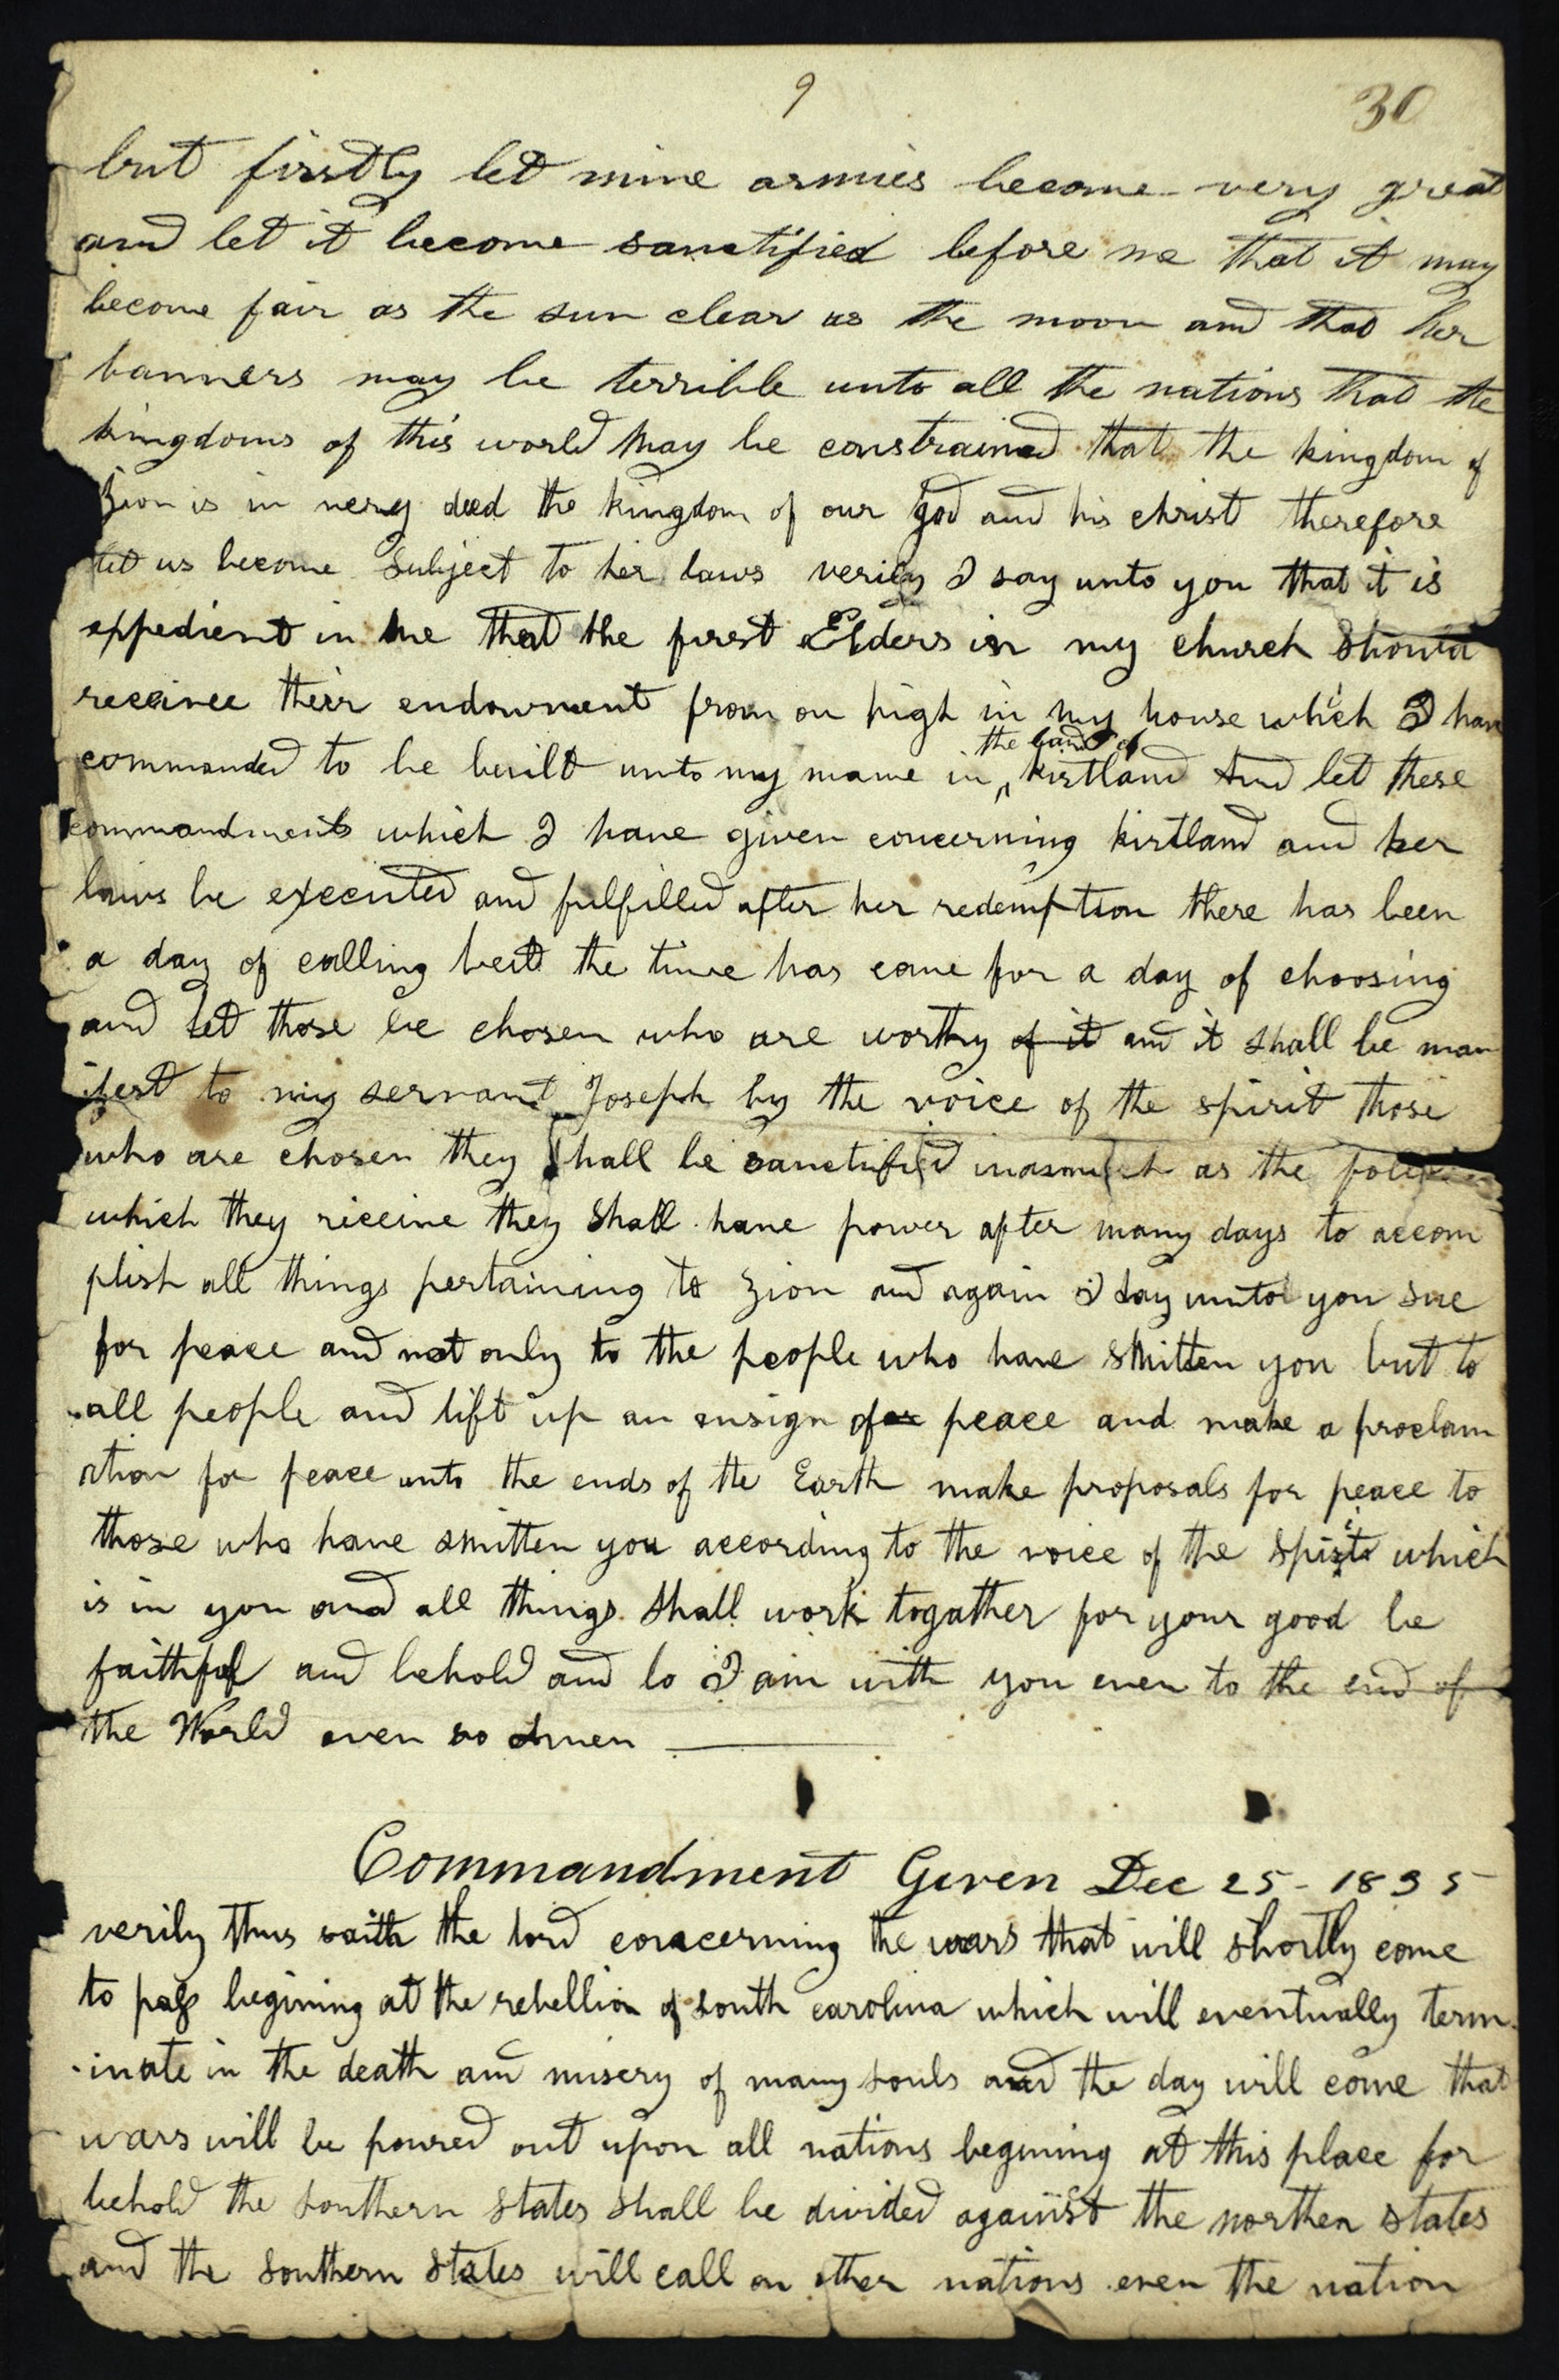 9
30
but firstly let mine armies become very great
and let it become sanctified before me that it may
become fair as the sun clear as the moon and that her
banners may be terrible unto all the nations that the
kingdoms of this world may be constrained that the kingdom of
Zion is in very deed the kingdom of our god and his christ therefore
let us become subject to her laws verily I say unto you that it is
expedient in me that the first Elders in my church should
receivee their endowment from on high in my house which I have
the land of
commanded to be built unto my name in ^ kirtland And let these
commandments which I have given concerning kirtland and her
laws be executed and fulfilled after her redemption there has been
a day of calling but the time has come for a day of choosing
and let those be chosen who are worthy of it and it shall be man
ifest to my servant Joseph by the voice of the spirit those
who are chosen they shall be sanctified inasmuch as the
which they riceive they shall have power after many days to accom
plish all things pertaining to zion and again I say unto you sue
for peace and not only to the people who have smitten you but to
all people and lift up an ensign for peace and make a proclam
ation for peace unto the ends of the Earth make proposals for peace to
those who have smitten you according to the voice of the spirit which
is in you and all things shall work togather for your good be
faithful and behold and lo I am with you even to the end of
the World even so Amen
Commandment Given Dec 25 - 1835
verily thus saith the lord concerning the wars that will shortly come
to pass begining at the rebellion of south carolina which will eventually term
-inate in the death and misery of many souls and the day will come that
wars will be poured out upon all nations begining at this place for
behold the southern states shall be divided against the northen states
and the southern states will call on other nations even the nation